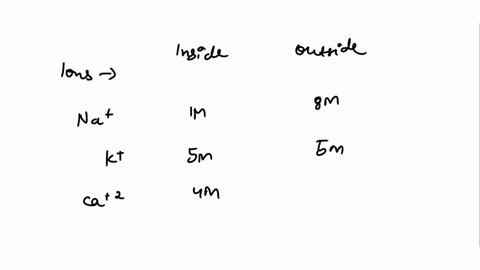 Inside Outside
Ions →
Na+ 1M 8M
K+ 5M 5M
Ca+2 4M